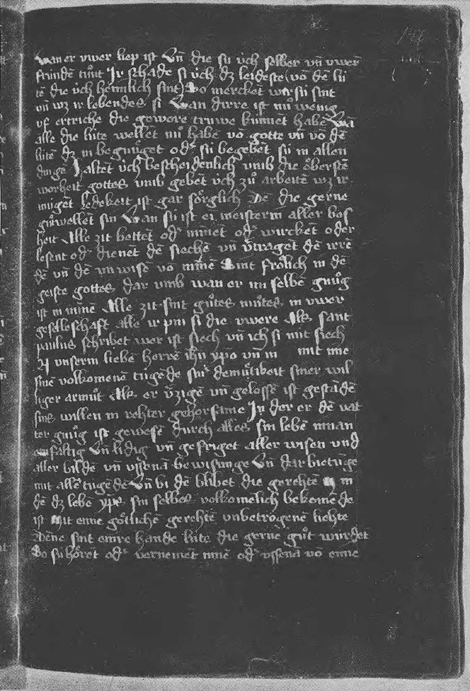 wan er vwer liep ist Vn̄ die sú v́ch selber vn̄ vwer
frúnde tůnt Ir schade si v́ch dz leideste vō dē lú
tē die v́ch heimlich sint So mercket wer sú sint
vn̄ wz ir lebendes si Wan dirre ist nu wenig
vf ertriche die gewore truwe kúnnēt habē Wā
alle die lúte wellet nu habē vō gotte vn̄ vō dē
lútē dz in begnúget odˢ sú begebēt sú in allen
dingē haltēt v́ch bescheidenlich vmb die oberstē
worheit gottes vmb gebēt v́ch zů arbeitē wz ir
múgēt ledekeit ist gar sorglich die gerne
gůt wellēt sin Wan sú ist ein meisterin aller bos
heit Alle zit bettēt odˢ oder wurcket oder
lesent odˢ dienēt dē siechē vn̄ v́traget dē irrē
dē vn̄ dē vnwise vō minē Sint frȯlich in dē
geiste gottes dar vmb wan er im selbē gnůg
ist in minē Alle zit sint gůtes můtes in vwer
geselleschaft alle ir pin si die vwere Als sant
paulus schribet wer ist siech vn̄ ich si nit siech
In vnserm liebē herrē ihū xp̄o vn̄ in mit
sine volkomenē tugēde sinˢ demůtikeit siner wil
liger armůt Als er vn̄ gelossē ist gestādē
sins willen in rehter gehorsame In der er dē vat
ter gnůg ist gewesē durch alles sin lebē
Vn̄ lidig vn̄ gefriget aller wisen vnd
aller bilde vn̄ vssenā bewisunge Vn̄ darbietūge
mit allē tugēdē Vn̄ bi dē blibet die gerehte in
dē dz lebē xp̄s sin selbes volkomelich bekomē
ist Mit eime gȯtlichē gerehtē vnbetrogenē liehte
sint einre hande lúte die gerne gůt wurdēt
So sú hȯret odˢ vernement odˢ vssenā vō eime